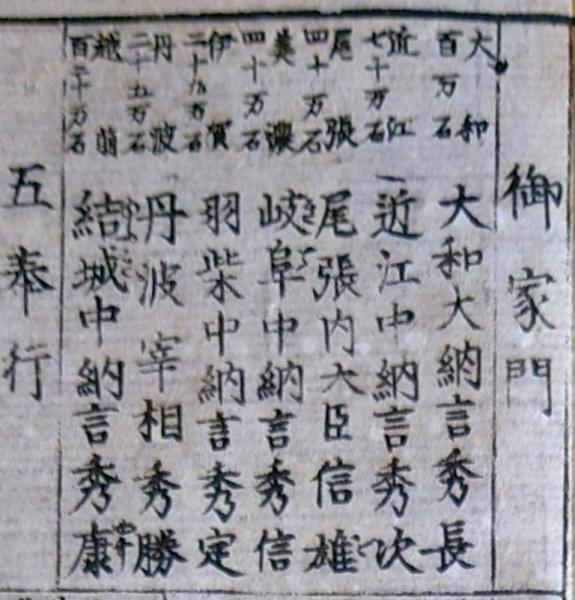 御家門
大和
百万石
大和大納言秀長
近江
七十万石
近江中納言秀次
尾張
四十万石
尾張内大臣信雄
美濃
四十万石
岐阜中納言秀信
伊賀
万石
羽柴中納言秀定
丹波
二十五万石
丹波宰相秀勝
越前
十万石
結城中納言秀康
五奉行